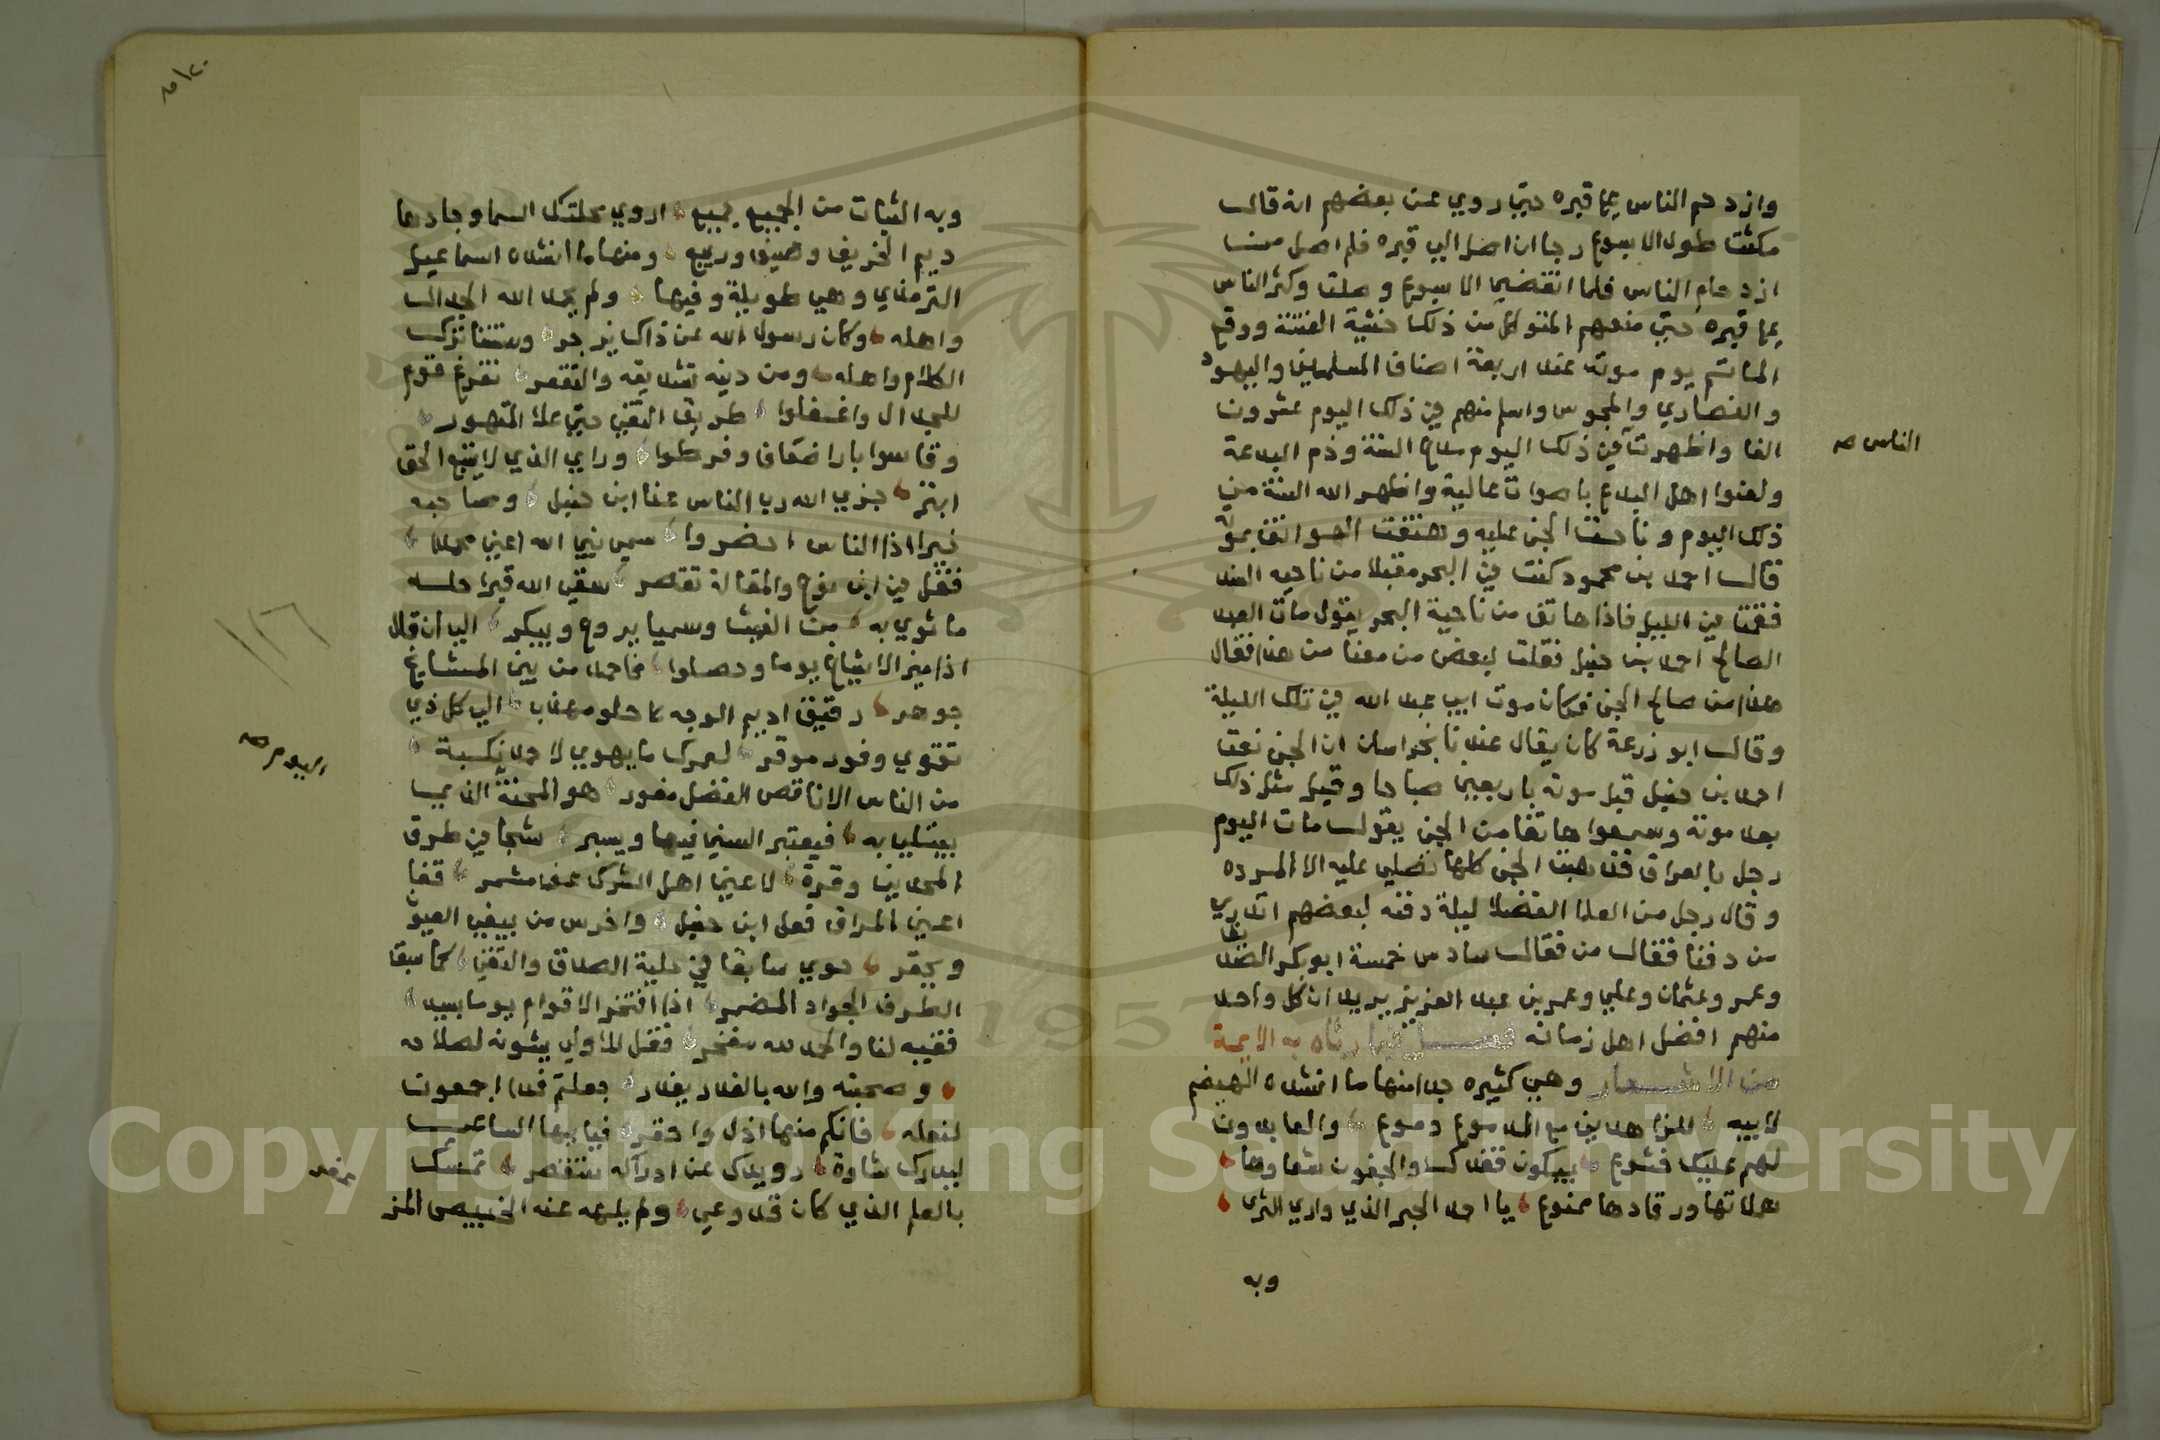 وازدحم الناس علي قبره حتي روي عن بعضهم انه قال
مكثت طول الاسبوع رجا ان اصل الي قبره فلم اصل من
ازدحام الناس فلما انقضي الاسبوع وصلت وكثر الناس
علي قبره حتي منعهم المتوكل من ذلك خشية الفتنة ووقع
الماتم يوم موته عند اربعة اصناف المسلمين واليهود
والنصاري والمجوس واسلم منهم في ذلك اليوم عشرون
الفا واظهرت في ذلك اليوم السنة وذم البدعة
الناس صح
ولعنوا اهل البدع باصوات عالية واظهر الله السنة من
ذلك اليوم وناحت الجن عليه وهتفت الهواتف بموته
قال احمد بن محمود كنت في البحر مقبلا من ناحيه السند
فقمت في الليل فاذا هاتف من ناحية البحر يقول مات العبد
الصالح احمد بن حنبل فقلت لبعض من معنا من هذا فقال
هذا من صالح الجن فكان موت ابي عبد الله في تلك الليلة
وقال ابو زرعة كان يقال عندنا بخراسان ان الجن نعت
احمد بن حنبل قبل موته باربعين صباحا وقيل مثل ذلك
بعد موته وسمعوا هاتفا من الجن يقول مات اليوم
رجل بالعراق فذهبت الجن كلها تصلي عليه الا المرده
وقال رجل من العلما الفضلا ليلة دفنه لبعضهم اتدري
من دفنا فقال من فقال سادس خمسة ابو بكر الصديق
وعمر وعثمان وعلي وعمر بن عبد العزيز يريد ان كل واحد
منهم افضل اهل زمانه فصل فيما رثاه به الايمة
من الاشعار وهي كثيره جدا منها ما انشده الهيضم
لابيه للزاهدين مع الدموع دموع والعابدون
لهم عليك خشوع يبكون فقدك والجفون شعاوها
هملاتها ورقادها ممنوع يا احمد الحبر الذي واري الثري
وبه
وبه الثبات من الجميع جميع اروي محلتك السما وجادها
ديم الخريف وصيف وربيع ومنها ما انشده اسماعيل
الترمذي وهي طويلة وفيها ولم يحمد الله الجدال
واهله وكان رسول الله عن ذاك يزجر وسنتنا ترك
الكلام واهله ومن دينه تشديقه والتقعر تفرغ قوم
للجدال واغفلوا طريق التقي حتي علا المتهور
وقاسوا بارا ضعاف وفرطوا وراي الذي لا يتبع الحق
ابتر جزي الله رب الناس عنا ابن حنبل وصاحبه
خيرا اذا الناس احضروا سمي نبي الله اعني محمدا
فقل في ابن نوح والمقالة تقصر سقي الله قبرا حله
ما ثوي به من الغيث وسميا يروح ويبكر الي ان قال
اذا ميز الاشياخ يوما وحصلوا فاحمد من بين المشايخ
جوهر رقيق اديم الوجه حلو مهذب الي كل ذي
تقوي وقور موقر لعمرك ما يهوي لاحمد نكسبة
اليوم صح
من الناس الا ناقص الفضل معور هو المحنة الذي
يبتلي به فيعتبر السني فيها ويسبر شجا في حلوق
الملحدين وقرة لاعين اهل النسك عف مشمر فقا
اعين المراق فعل ابن حنبل واخرس من يبغي العيوب
ويحقر حوي سابقا في حلبة الصدق والتقي كما سبق
الطرف الجواد المضمر اذا افتخر الاقوام يوما بسيد
ففيه لنا والحمد لله مفخر فقل للاولي يشونه لصلاحه
وصحبته والله بالغدر يغدر جعلتم فدا اجمعون
لنعله فانكم منها اذل واحقر فيا ايها الساعي
ليدرك شاوه رويدك عن ادراكه ستقصر تمسك
بالعلم الذي كان قد وعي ولم يلهه عنه الخبيص المز
عفر